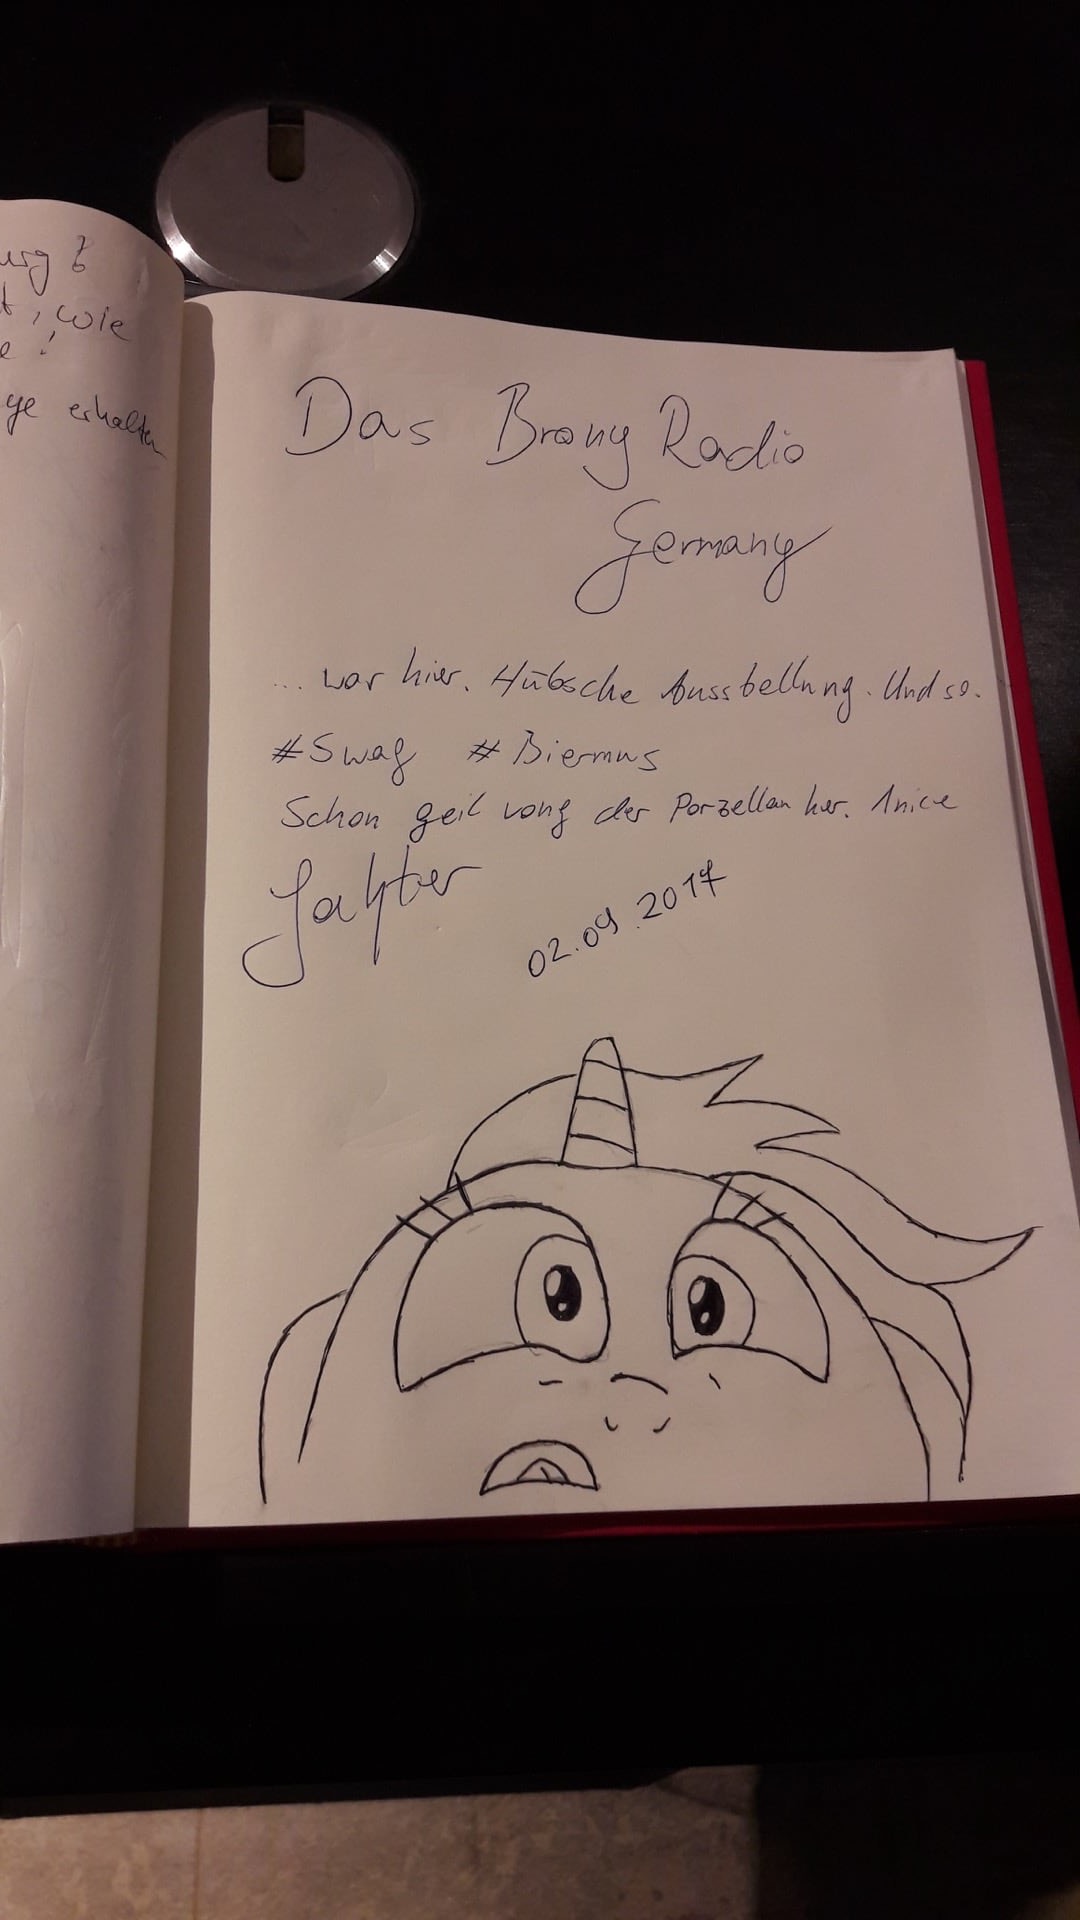 urg
t, wie
e!
ge erhalten
Das Brony Radio
Germany
... war hier. Hübsche Ausstellung. Und so.
#Swag #Biermus
Schon geil vong der Porzellan her. 1nice
02.09.2017